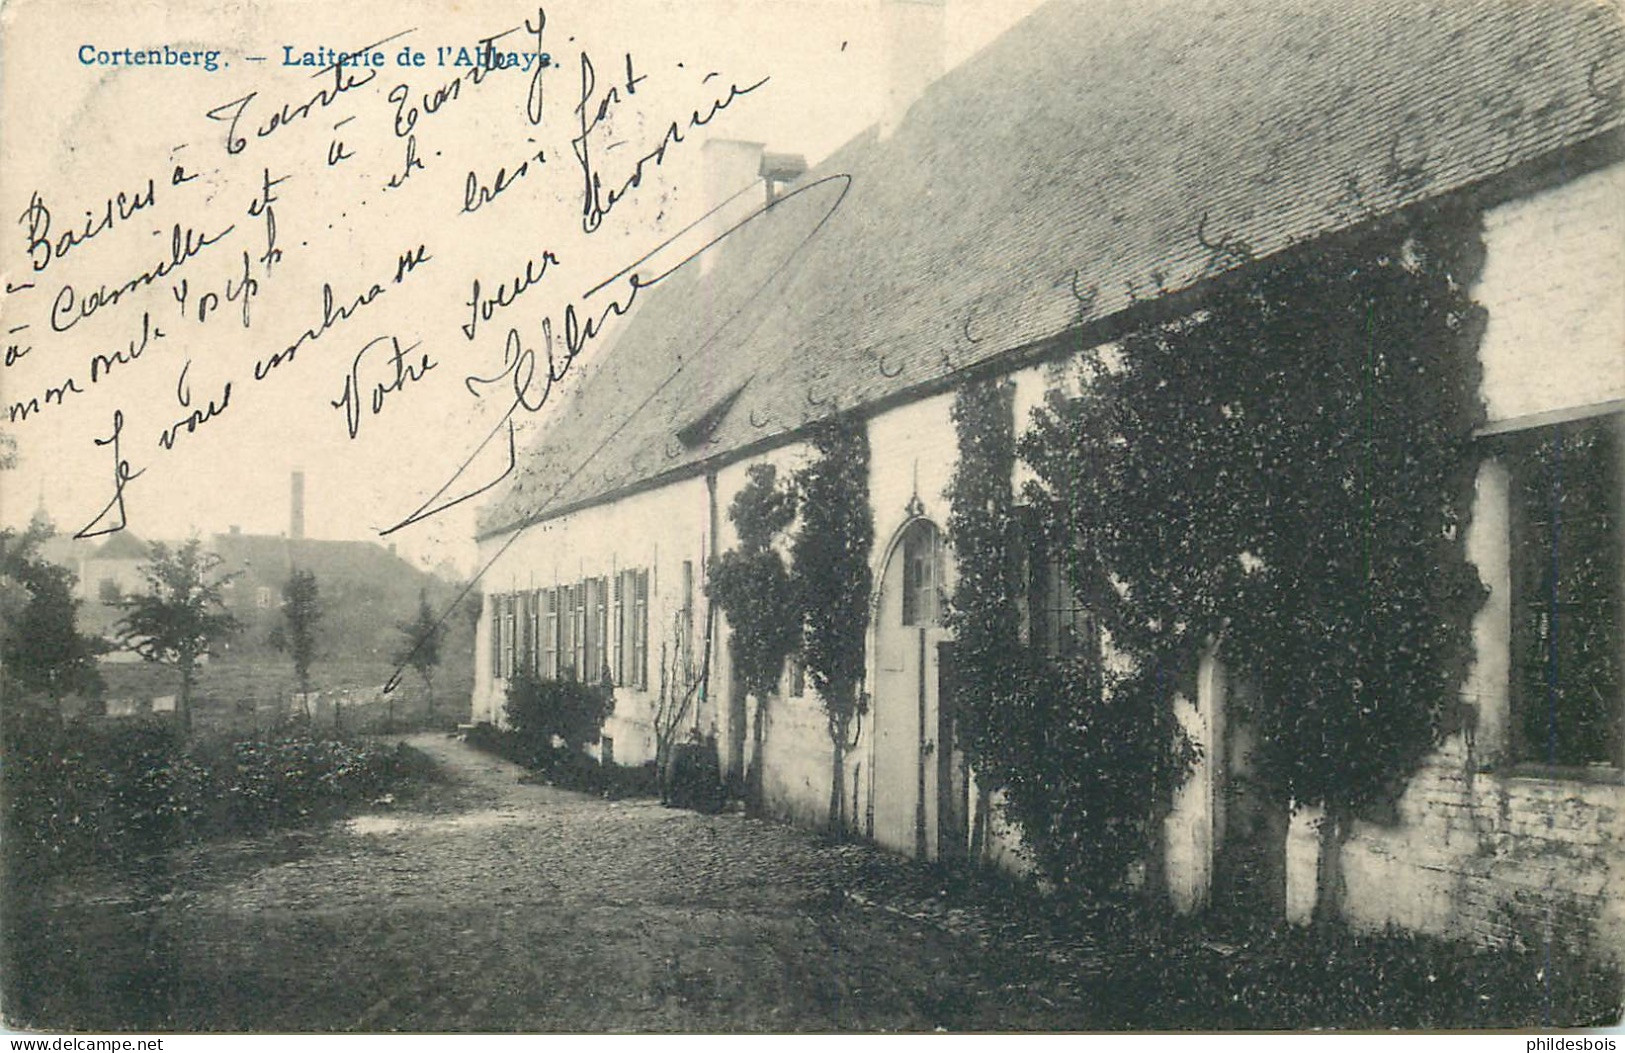 Cortenberg. — Laiterie de l'Abbaye.
Baisers à Tante
à Camille et à Tante J.
mon oncle Joseph ... ch.
Je vous embrasse bien fort.
Votre soeur dévouée
delcampe.net
philidesbois